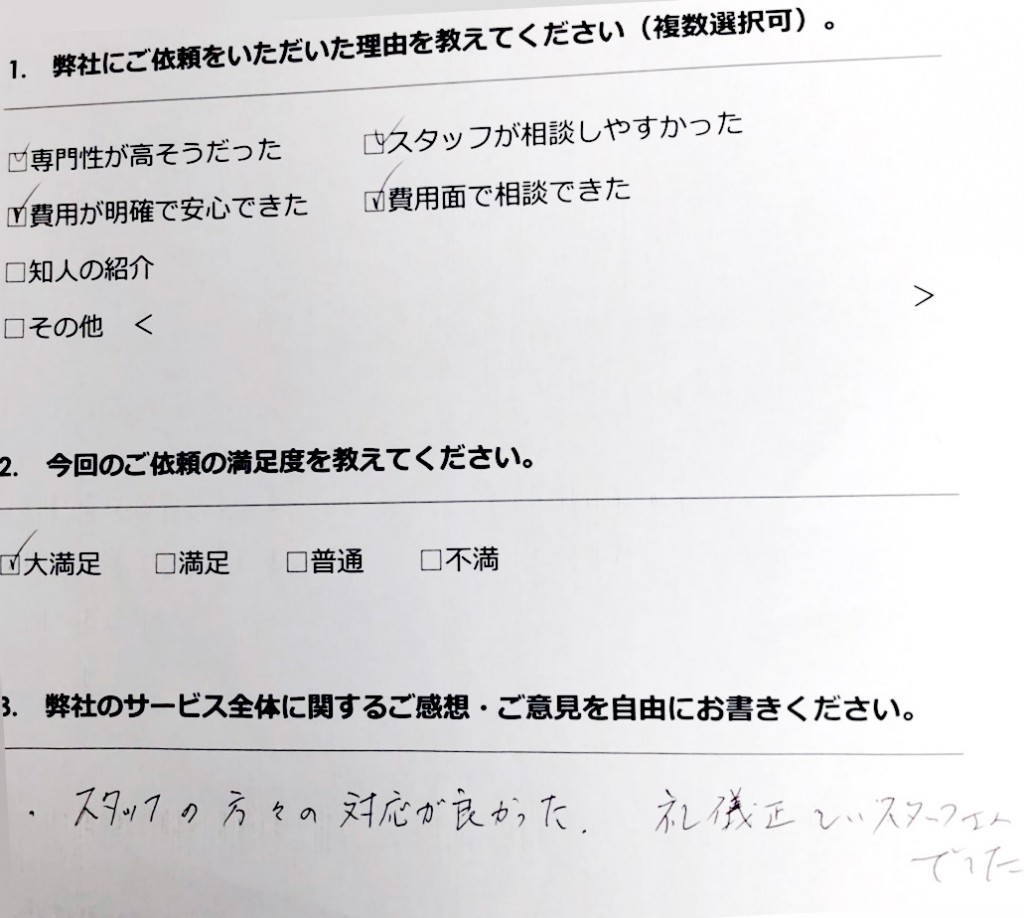 1. 弊社にご依頼をいただいた理由を教えてください（複数選択可）。
☑専門性が高そうだった ☑スタッフが相談しやすかった
☑費用が明確で安心できた ☑費用面で相談できた
□知人の紹介
□その他 < >
2. 今回のご依頼の満足度を教えてください。
☑大満足 □満足 □普通 □不満
3. 弊社のサービス全体に関するご感想・ご意見を自由にお書きください。
・スタッフの方々の対応が良かった. 礼儀正しいスタッフさん
でした